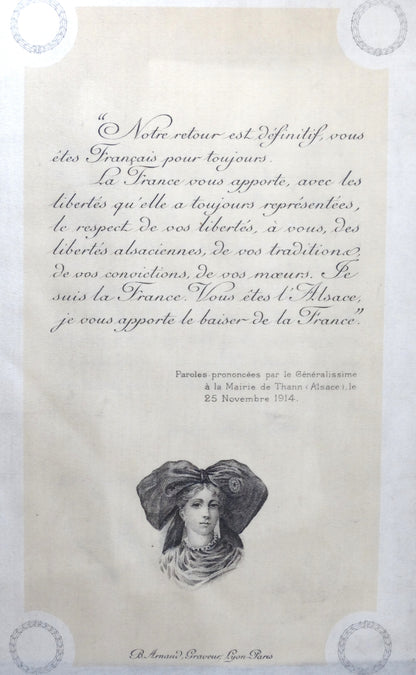 “Notre retour est définitif, vous
êtes Français pour toujours.
La France vous apporte, avec les
libertés qu'elle a toujours représentées,
le respect de vos libertés, à vous, des
libertés alsaciennes, de vos traditions,
de vos convictions, de vos mœurs. Je
suis la France. Vous êtes l'Alsace,
je vous apporte le baiser de la France”.
Paroles prononcées par le Généralissime
à la Mairie de Thann (Alsace), le
25 Novembre 1914.
B. Arnaud, Graveur, Lyon-Paris